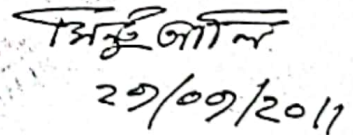 মিন্টু আলি
২৭/০৭/২০১১